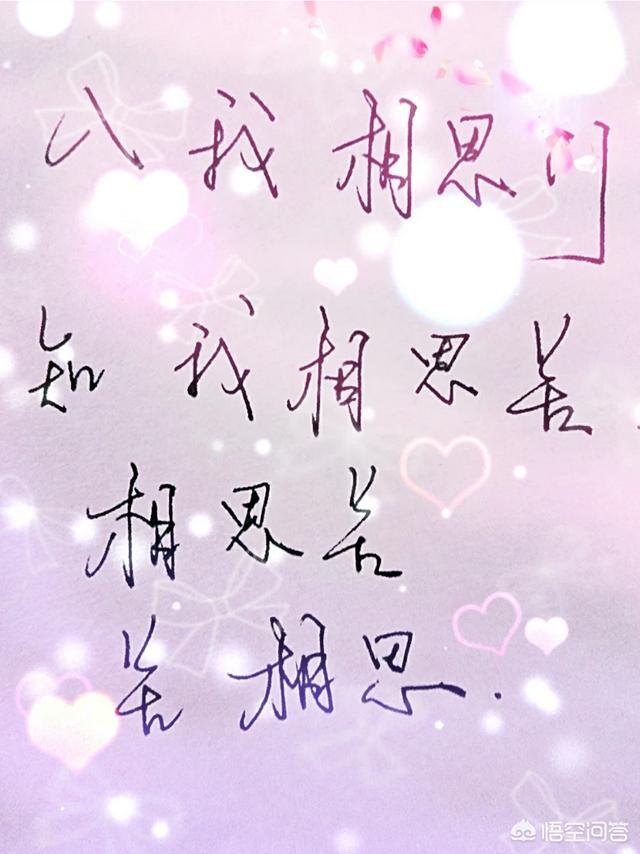 入我相思门
知我相思苦
相思苦
苦相思.
悟空问答